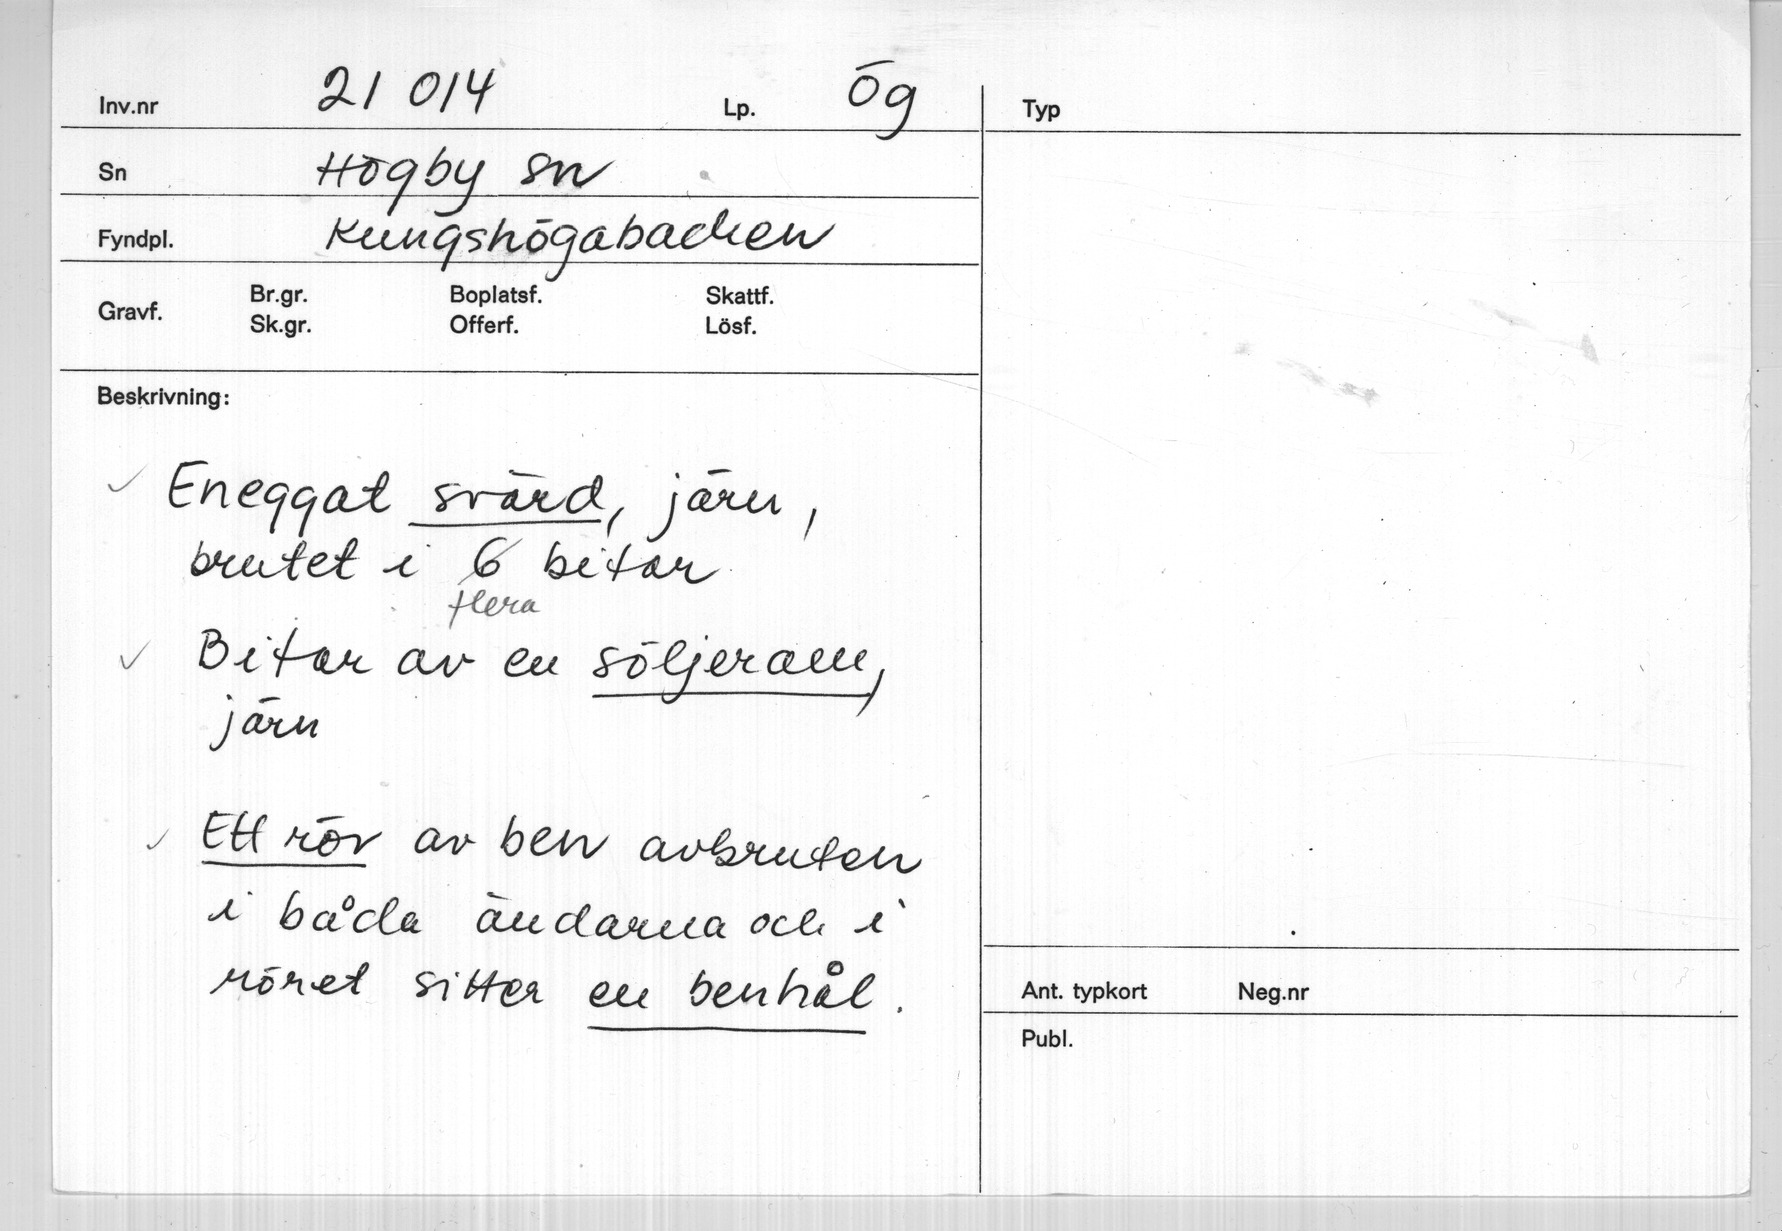 Inv.nr 21 014 Lp. Ög
Sn Högby sn
Fyndpl. Kungshögabacken
Gravf. Br.gr. Boplatsf. Skattf.
Sk.gr. Offerf. Lösf.
Beskrivning:
✓ Eneggat svärd, järn,
brutet i 6 bitar
flera
✓ Bitar av en söljeram,
järn
✓ Ett rör av ben avbruten
i båda ändarna och i
röret sitter en benhål.
Typ
Ant. typkort Neg.nr
Publ.